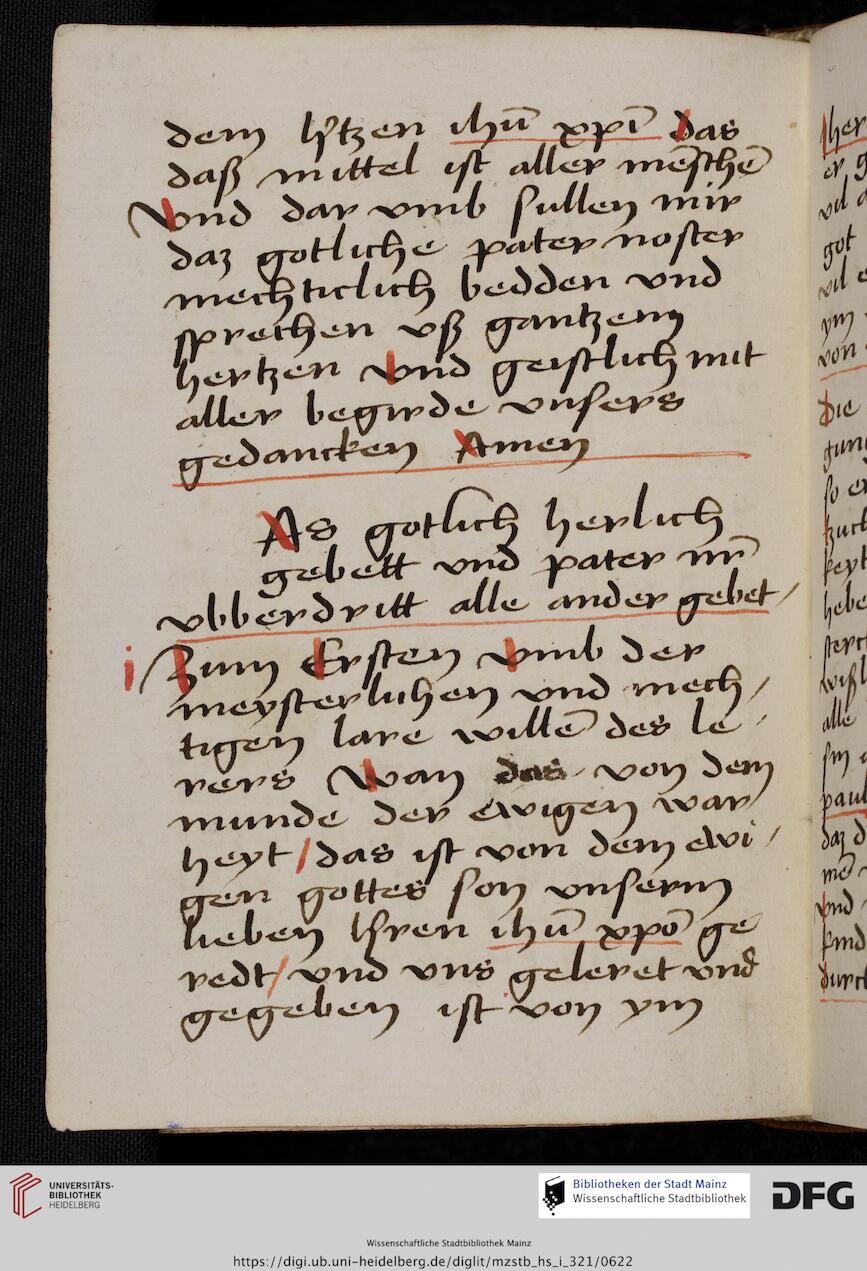 dem h'tzen ihū xpī das
daß mittel ist aller mēschē
Vnd dar vmb sullen mir
daz gotliche pater noster
mechticlich bedden vnd
sprechen vß gantzem
hertzen vnd geistlich mit
aller begirde vnsers
gedancken Amen
As gotlich herlich
gebett vnd pater nr̄
vbberdritt alle ander gebet
i Zum Ersten vmb der
meysterlichen vnd mech/
tigen lare willē des le/
rers Wan das von dem
munde der ewigen war
heyt / das ist von dem ewi/
gen gottes son vnserm
lieben h'ren ihū xpō ge
redt / vnd vns geleret vnd
gegeben ist von ym
UNIVERSITÄTS-
BIBLIOTHEK
HEIDELBERG
Bibliotheken der Stadt Mainz
Wissenschaftliche Stadtbibliothek
DFG
Wissenschaftliche Stadtbibliothek Mainz
https://digi.ub.uni-heidelberg.de/diglit/mzstb_hs_i_321/0622